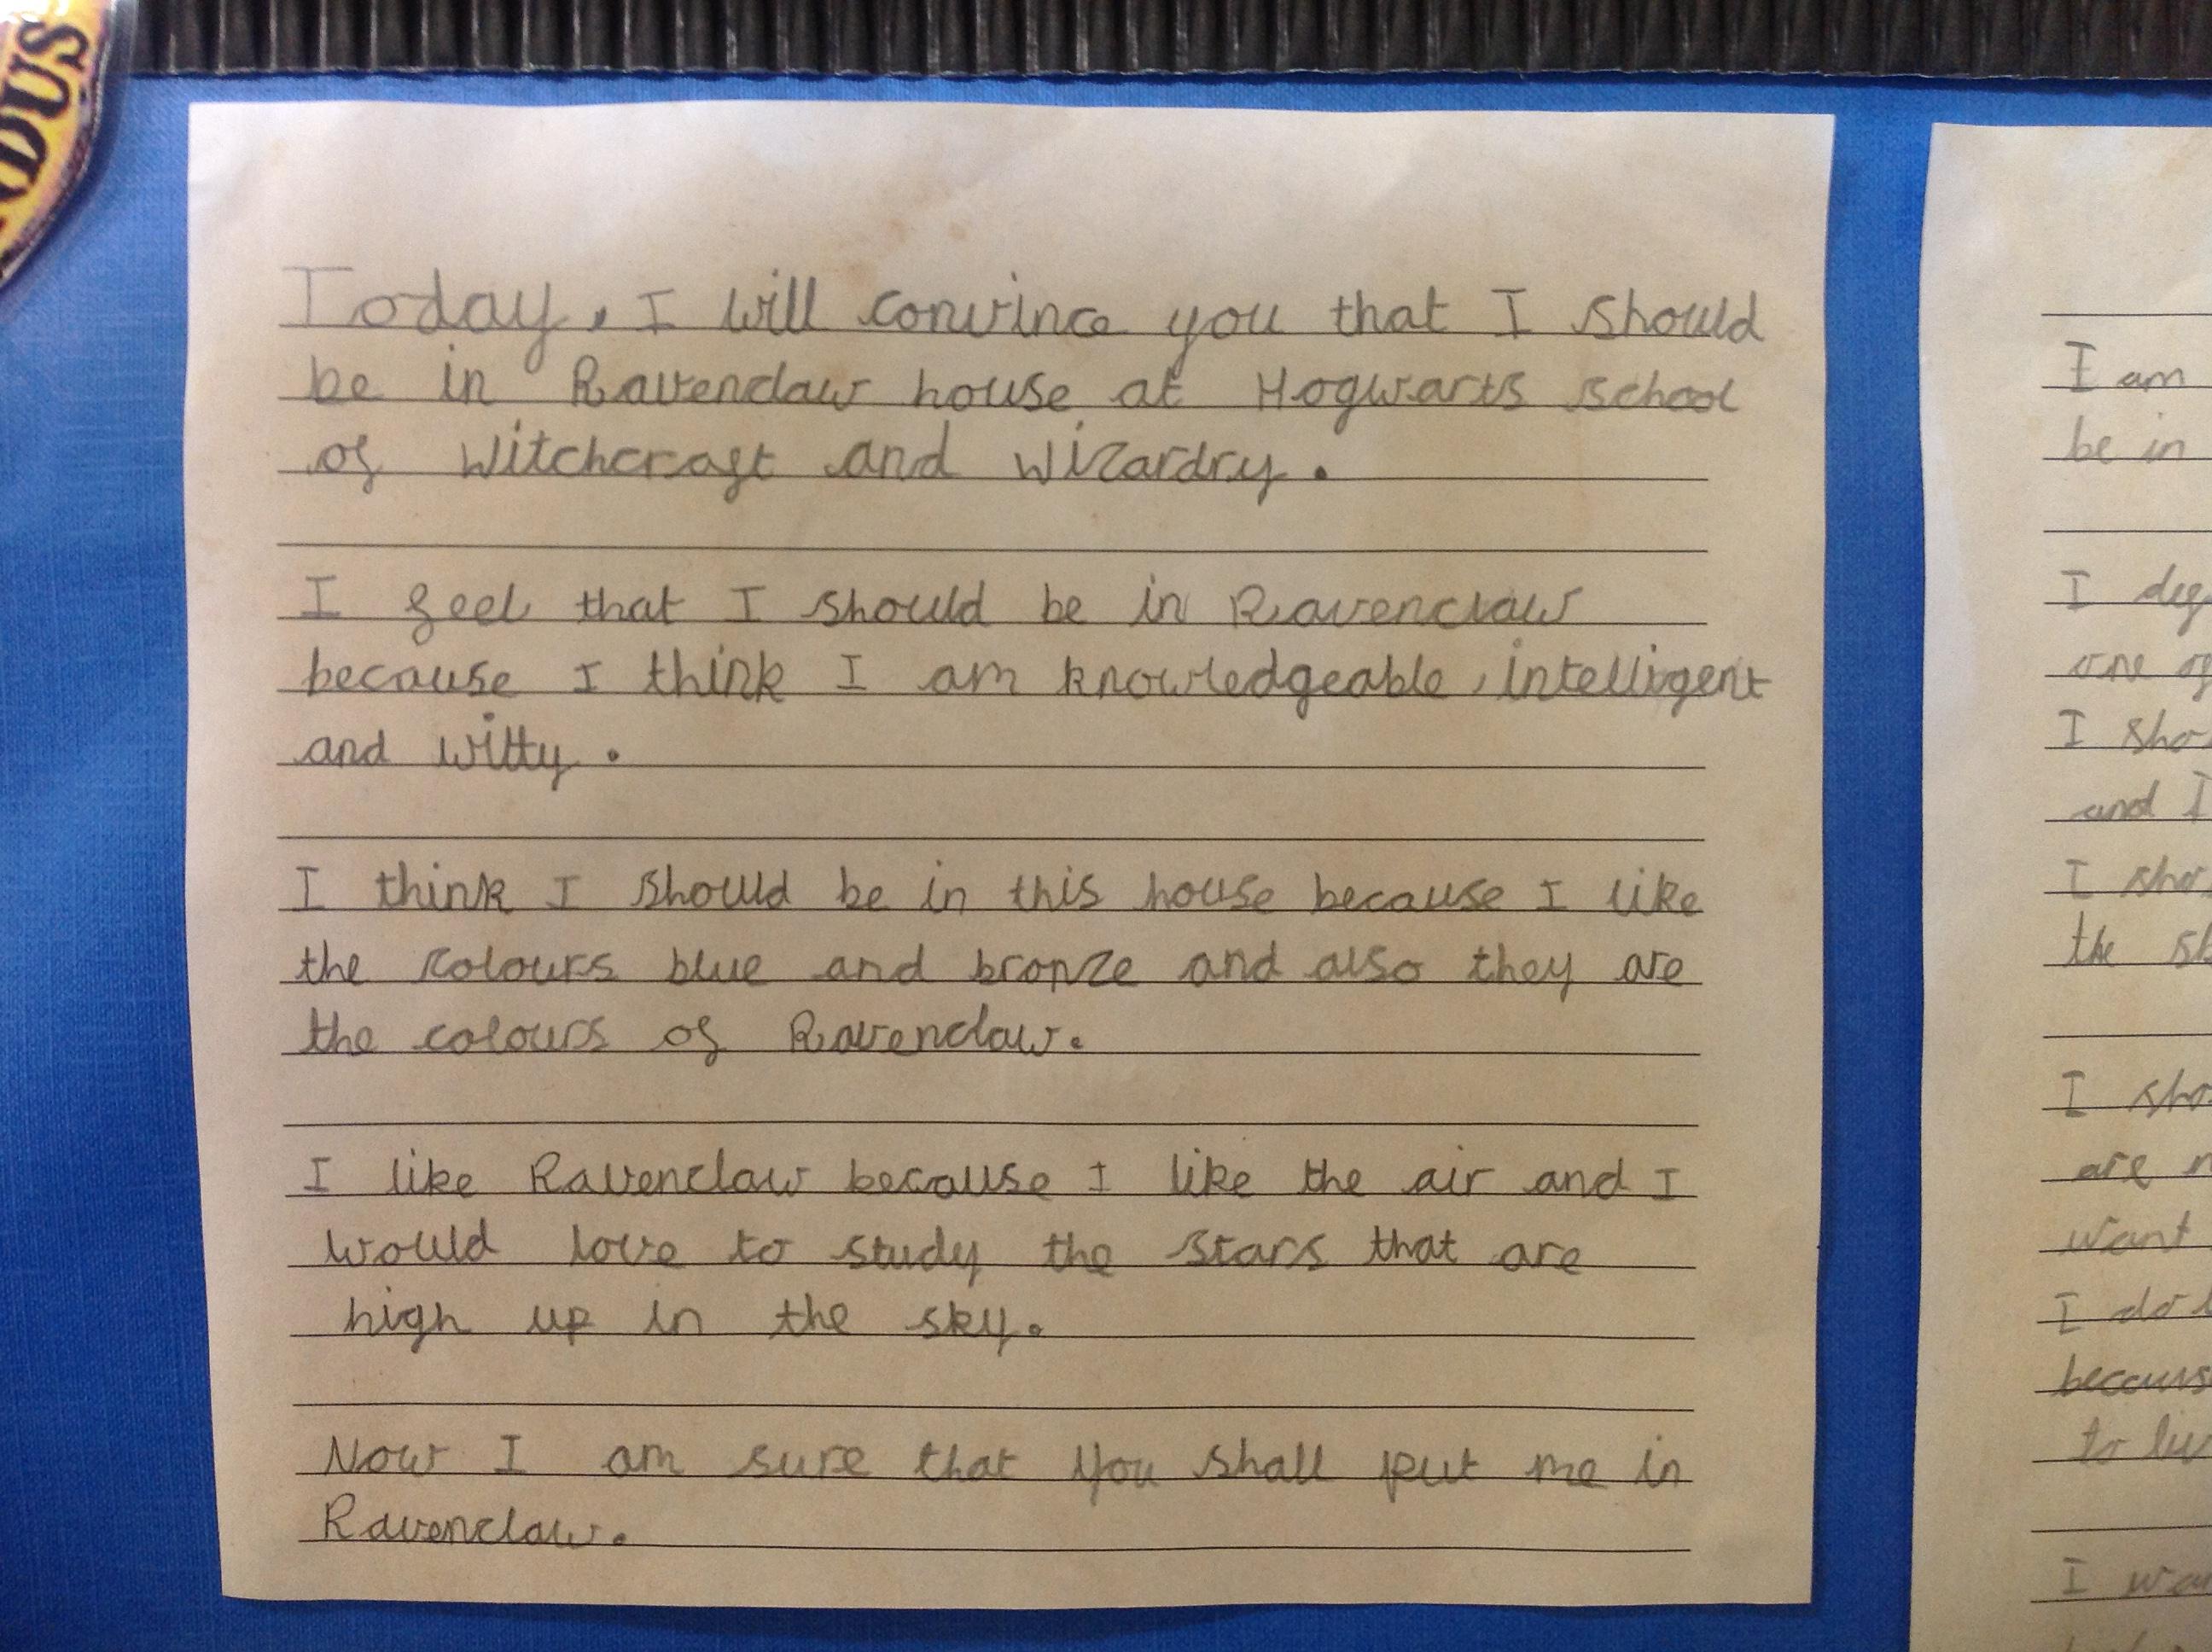 NDUS
Today, I will convince you that I should
be in Ravenclaw house at Hogwarts school
of Witchcraft and Wizardry.
I feel that I should be in Ravenclaw
because I think I am knowledgeable, intelligent
and witty.
I think I should be in this house because I like
the colours blue and bronze and also they are
the colours of Ravenclaw.
I like Ravenclaw because I like the air and I
would love to study the stars that are
high up in the sky.
Now I am sure that you shall put me in
Ravenclaw.
I am
be in
I
one of
I
and I
I
the
I
are
want
I do
because
to
I